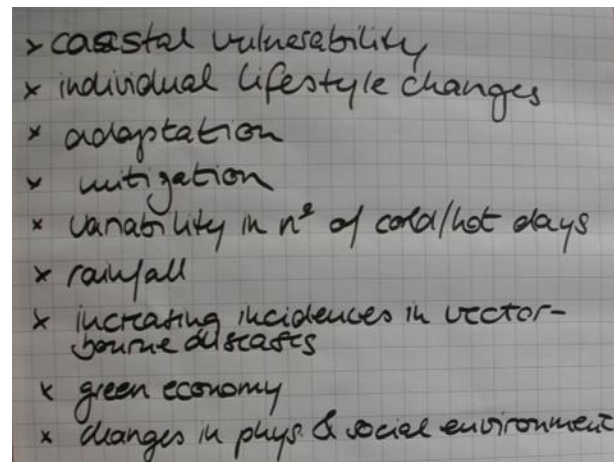 × coastal vulnerability
× individual lifestyle changes
× adaptation
× mitigation
× variability in nº of cold/hot days
× rainfall
× increasing incidences in vector-
bourne diseases
× green economy
× changes in phys. & social environment